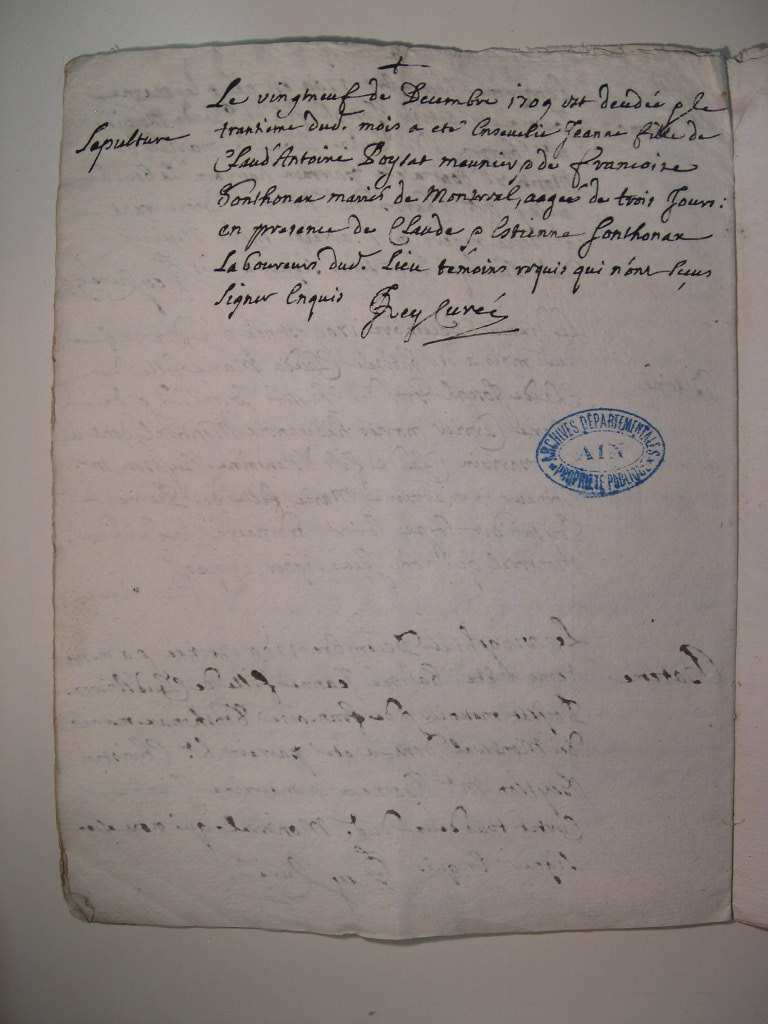 +
Sepulture
Le vingtneuf de Decembre 1709 est decedée & le
trantieme dud. mois a eté Ensevelie Jeanne fille de
Claud' Antoine Poysat meunier & de francoise
Sonthonax mariés de Montreal, aagée de trois Jours:
en presence de Claude & Estienne Sonthonax
Laboureurs dud. Lieu temoins requis qui n'ont sçeus
signer Enquis Rey Curé
ARCHIVES DÉPARTEMENTALES
AIN
PROPRIÉTÉ PUBLIQUE